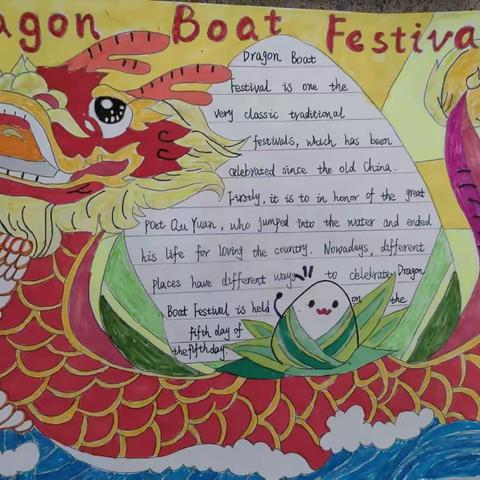 agon Boat Festiva
Dragon Boat
Festival is one the
very classic traditional
festivals, which has been
celebrated since the old China.
Firstly, it is to in honor of the great
poet Qu Yuan, who jumped into the water and ended
his life for loving the country. Nowadays, different
places have different ways to celebrate Dragon
Boat Festival is held on the
fifth day of
the fifth day.